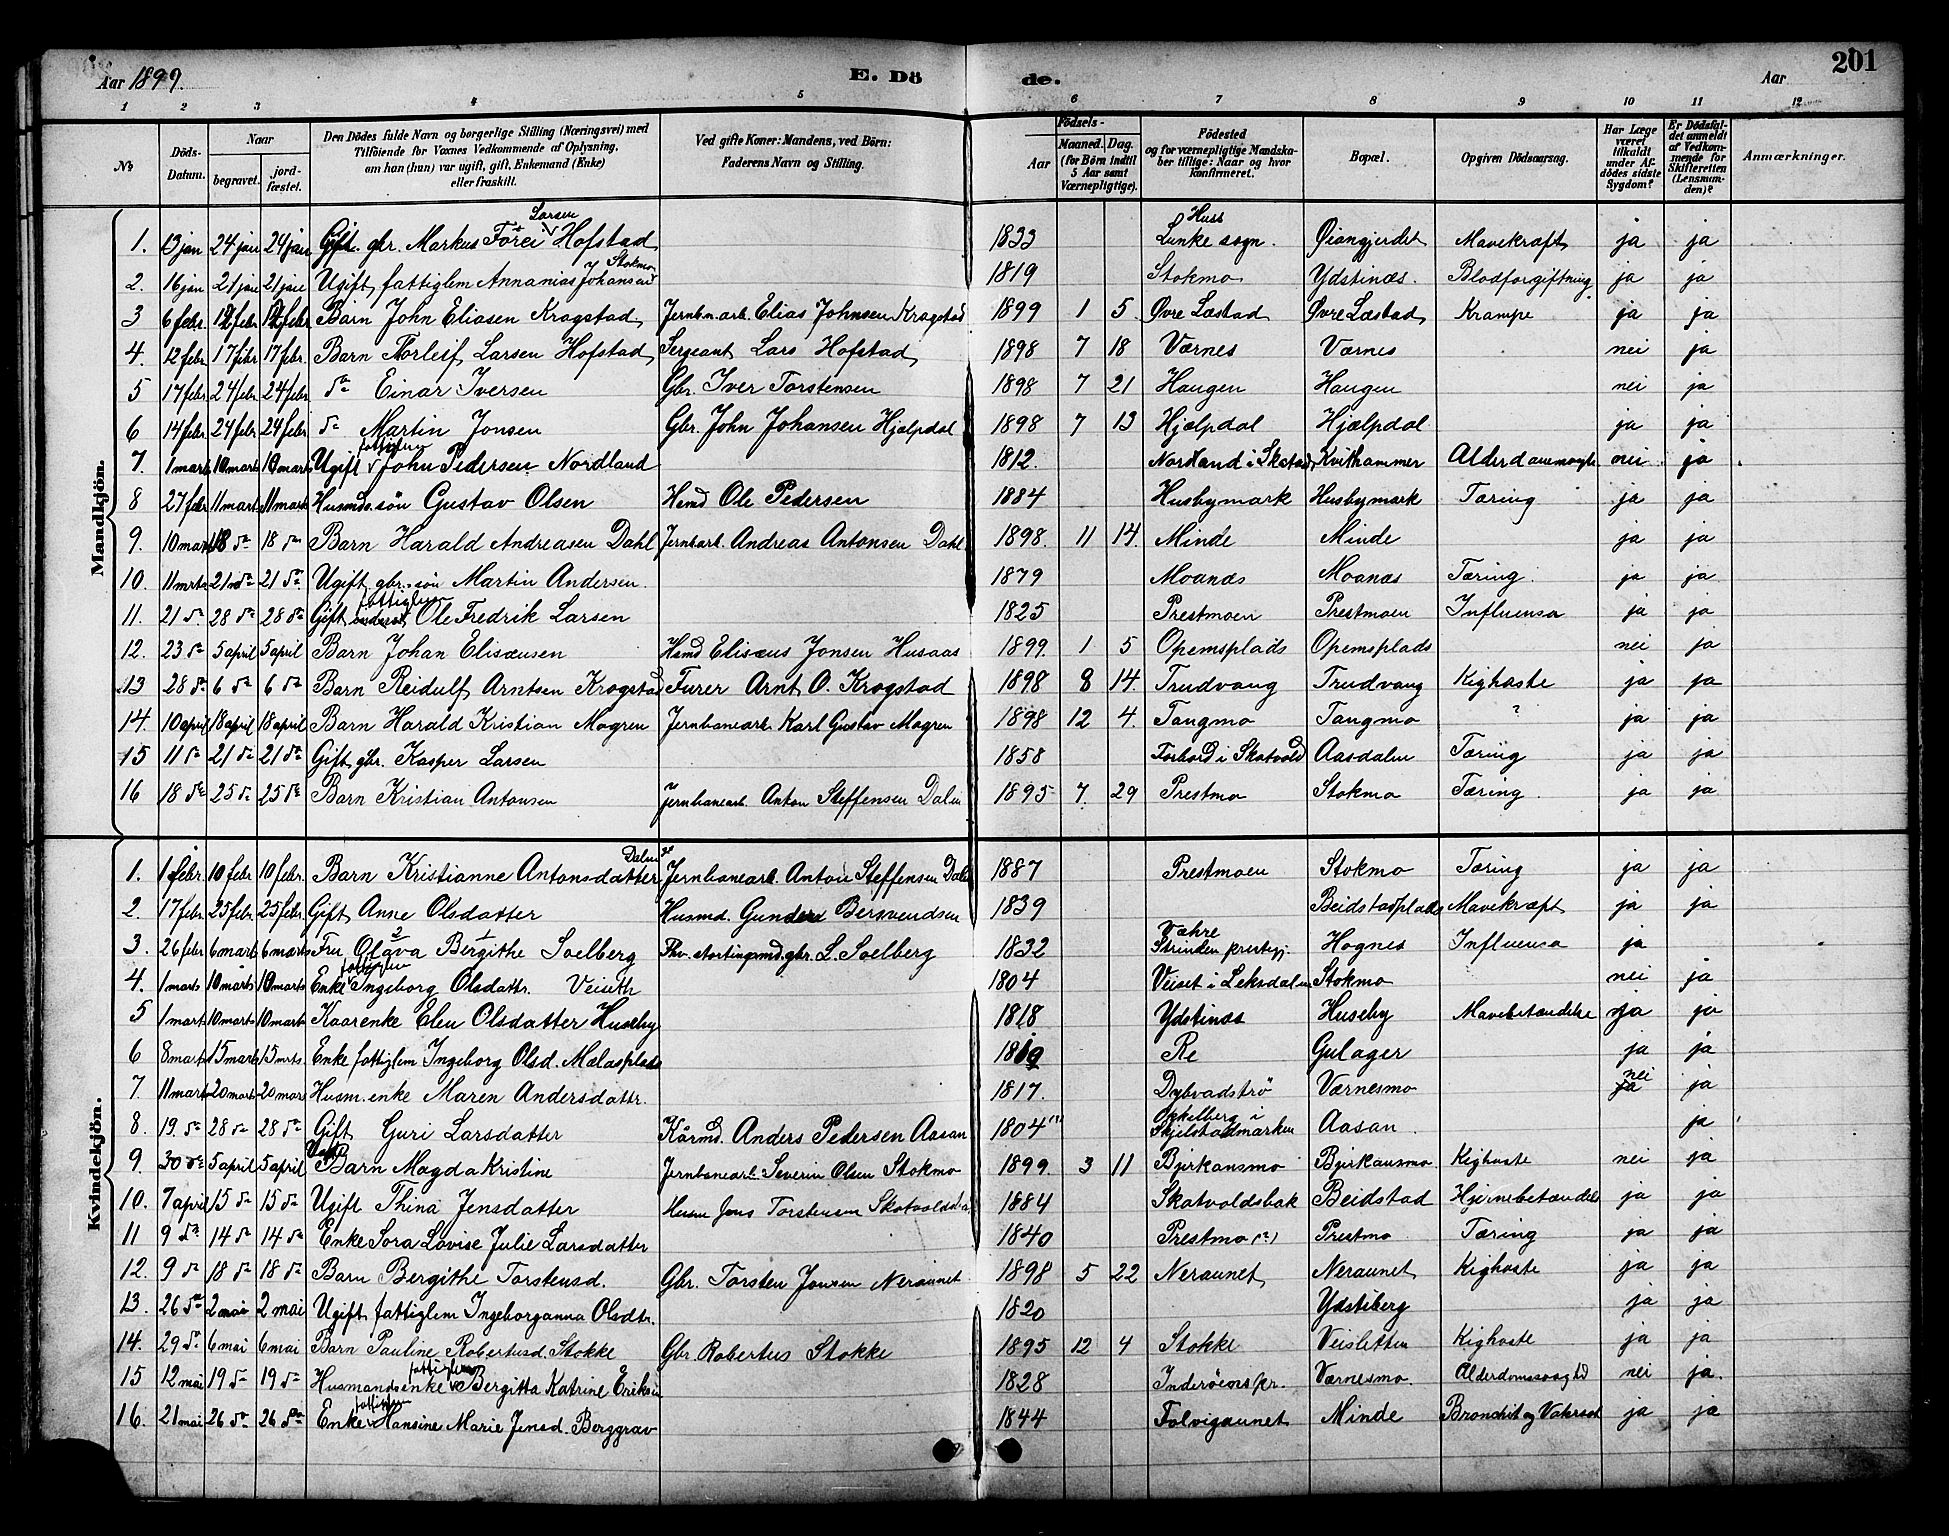 Aar 1899. E. Döde. Aar 201
1 2 3 4 5 6 7 8 9 10 11 12
№ Döds-Datum. Naar begravet. jordfæstet. Den Dödes fulde Navn og borgerlige Stilling (Næringsvei) med Tilföiende for Voxnes Vedkommende af Oplysning, om han (hun) var ugift, gift, Enkemand (Enke) eller fraskilt. Ved gifte Koner: Mandens, ved Börn: Faderens Navn og Stilling. Födsels- Aar Maaned. Dag. (for Börn indtil 5 Aar samt Værnepligtige). Födested og for værnepligtige Mandskaber tillige: Naar og hvor konfirmeret. Bopæl. Opgiven Dödsaarsag. Har Læge været tilkaldt under Afdödes sidste Sygdom? Er Dödsfaldet anmeldt af Vedkommende for Skifteretten (Lensmanden)? Anmærkninger.
Mandkjön.
1. 13 jan 24 jan 24 jan Gift. gbr. Markus Larsen Hofstad 1833 Øiangjerdet Mavekræft ja ja
2. 16 jan 21 jan 21 jan Ugift fattiglem Annanias Johansen Stokmo 1819 Stokmo Ydstinæs. Blodforgiftning ja ja
3 6 febr. 12 febr 12 febr Barn John Eliasen Kragstad Jernbn.arb. Elias Johnsen Kragstad 1899 1 5. Øvre Læstad Øvre Læstad Krampe ja ja
4. 12 febr 17 febr 17 febr. Barn Thorleif Larsen Hofstad Sergeant Lars Hofstad 1898 7 18 Værnes Værnes nei ja
5 17 febr 24 febr 24 febr do Einar Iversen Gbr. Iver Torstensen 1898 7 21 Haugen Haugen nei ja
6 14 febr 24 febr 24 febr do Martin Jonsen Gbr. John Johansen Hjælpdal 1898 7 13 Hjælpdal Hjælpdal ja ja
7. 1 mart 10 marts 10 marts Ugift fattiglem John Pedersen Nordland 1812. Kvithammer nei ja
8 27 febr 11 marts 11 marts Husmds. sön Gustav Olsen Hsmd Ole Pedersen 1884 Husbymark Husbymark Tæring ja ja
9. 10 marts 18 do 18 do Barn Harald Andreasen Dahl Jernb.arb. Andreas Antonsen Dahl 1898. 11 14. Minde Minde ja ja
10. 11 mrts 21 do 21 do Ugift gbr. sön Martin Andersen. 1879 Moanæs Moanæs Tæring. ja ja
11. 21 do 28 do 28 do Gift fattiglem Ole Fredrik Larsen 1825 Prestmoen Prestmoen Influensa ja ja
12. 23 do 5 april 5 april Barn Johan Elisæusen Hsmd Elisæus Jonsen Husaas 1899. 1 5 Opemsplads Opemsplads nei ja
13 28 do 6 do 6 do Barn Reidulf Arntsen Krogstad Furer Arnt O. Krogstad 1898 8 14. Trudvang Trudvang Kighoste ja ja
14. 10 april 18 april 18 april Barn Harald Kristian Mogren Jernbanearb. Karl Gustav Mogren 1898 12 4. Tangmo Tangmo ? ja ja
15 11 do 21 do 21 do Gift gbr. Kasper Larsen 1858 Forbord i Skatvold Aasdalen Tæring ja ja
16 18 do 25 do 25 do Barn Kristian Antonsen Jernbanearb. Anton Steffensen Dalen 1895 7. 29 Prestmo Stokmo Tæring. ja ja
Kvindekjön.
1. 1 febr. 10 febr 10 febr. Barn Kristianne Antonsdatter Dalen Jernbanearb. Anton Steffensen Dalen 1887 Prestmoen Stokmo Tæring ja ja
2. 17 febr 25 febr 25 febr Gift Anne Olsdatter Husmd. Gunder Bersvendsen 1839 Beidstadplads Mavekræft ja ja
3. 26 febr 6 marts 6 marts Fru Olava Bergithe Soelberg Fhv. stortingsmd. gbr. L. Soelberg 1832 Hognes Influensa ja
4. 1 marts 10 marts 10 marts Enke fattiglem Ingeborg Olsdattr. Veiseth 1804 Veiset i Leksdalen Stokmo nei ja
5 1 mart 10 marts 10 marts Kaarenke Elen Olsdatter Huseby 1818 Ydstinæs Huseby Mavebetændelse ja ja
6 8 mart 15 marts 15 mrts Enke fattiglem Ingeborg Olsd. Mælasplads Re Gulager ja ja
7 11 marts 20 marts 20 mars Husm. enke Maren Andersdattr. 1817. Dybvadströ Værnesmo nei ja
8. 19. do 28 do 28 do Gift Guri Larsdatter Kårmd. Anders Pedersen Aasan 1804 Skjelstadmarken Aasan. ja
9. 30 do 5 april 5 april Barn Magda Kristine Jernbanearb. Severin Olsen Stokmo 1899. 3 11 Bjerkansmo Bjerkansmo Kighoste nei ja
10. 7 april 15 do 15 do Ugift Thina Jensdatter Husm Jens Torstensen 1884 Skatvoldsbak Beidstad Hjernebetændels ja ja
11 9 do 14 do 14 do Enke Sora Lovise Julie Larsdatter 1840 Prestmo (?) Prestmo Tæring ja ja
12. 9 do 18 do 18 do Barn Bergithe Torstensd. Gbr. Torsten Jonsen Neraunet 1898 5 22 Neraunet Neraunet Kighoste ja ja
13. 26 do 2 mai 2 mai Ugift fattiglem Ingeborganna Olsdtr. 1820 Ydstiberg ja ja
14. 29 do 6 mai 6 mai Barn Pauline Robertusd Stokke Gbr. Robertus Stokke 1895 12 4 Stokke Veisletten Kighoste ja ja
15 12 mai 19 do 19 do Husmandsenke fattiglem Bergitta Katrine Eriksd 1828 Inderöens pr. Værnesmo. Alderdomssvaghd nei ja.
16. 21 mai 26 do 26 do Enke fattiglem Hansine Marie Jensd. Berggrav 1844 Folvigaunet Minde Bronchit og Vatersot ja ja